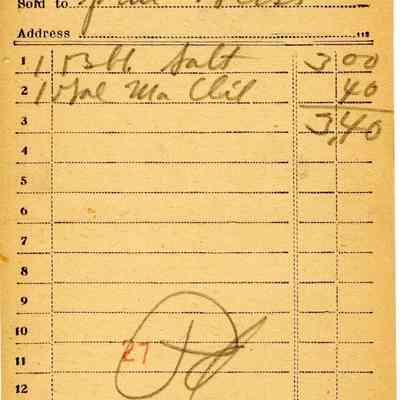 Sold to
Address 112
1 1 Bbl Salt 3 00
2 1 Gal Ma Oil 40
3 3,40
4
5
6
7
8
9
10
27
11
12